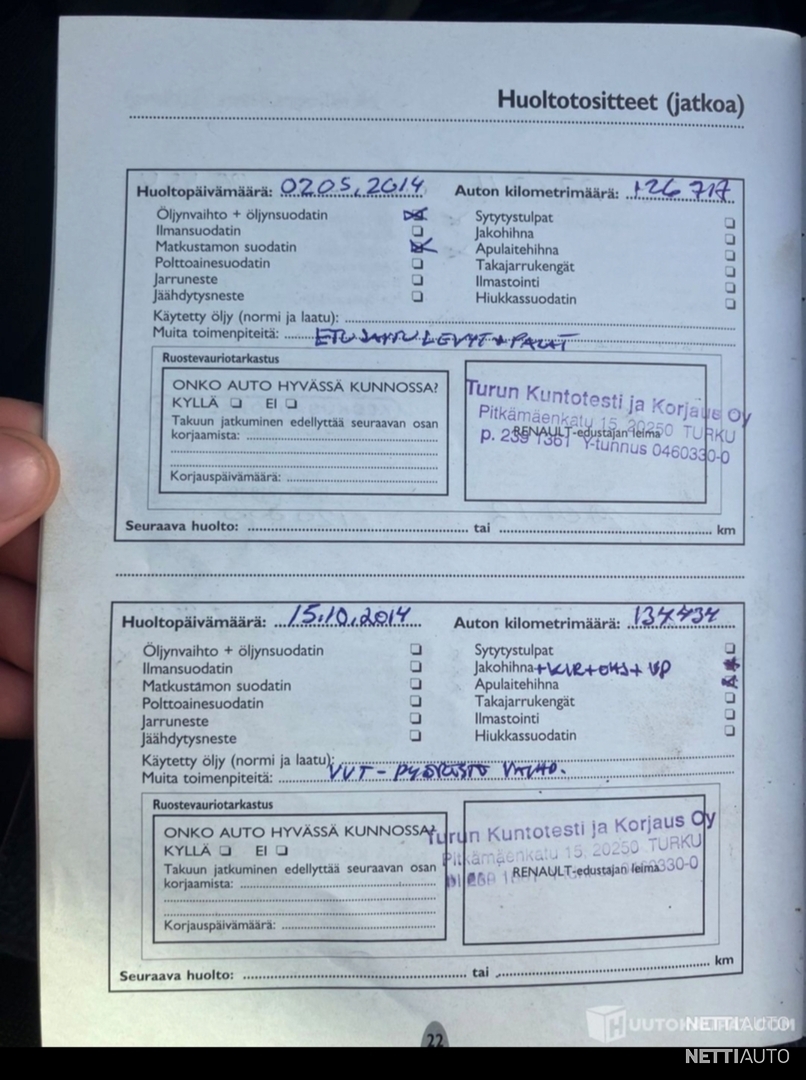 Huoltotositteet (jatkoa)
Huoltopäivämäärä: 02 05, 2014 Auton kilometrimäärä: 126 717
Öljynvaihto + öljynsuodatin Sytytystulpat
Ilmansuodatin Jakohihna
Matkustamon suodatin Apulaitehihna
Polttoainesuodatin Takajarrukengät
Jarruneste Ilmastointi
Jäähdytysneste Hiukkassuodatin
Käytetty öljy (normi ja laatu):
Muita toimenpiteitä: ETUJARRULEVYT + PALAT
Ruostevauriotarkastus
ONKO AUTO HYVÄSSÄ KUNNOSSA?
KYLLÄ EI
Takuun jatkuminen edellyttää seuraavan osan
korjaamista:
Korjauspäivämäärä:
Turun Kuntotesti ja Korjaus Oy
Pitkämäenkatu 15, 20250 TURKU
RENAULT-edustajan leima
p. 239 1361 Y-tunnus 0460330-0
Seuraava huolto: tai km
Huoltopäivämäärä: 15.10.2014 Auton kilometrimäärä: 137434
Öljynvaihto + öljynsuodatin Sytytystulpat
Ilmansuodatin Jakohihna +KIR+OHJ+VP
Matkustamon suodatin Apulaitehihna
Polttoainesuodatin Takajarrukengät
Jarruneste Ilmastointi
Jäähdytysneste Hiukkassuodatin
Käytetty öljy (normi ja laatu):
Muita toimenpiteitä: VVT - PYÖRÄSTÖ VAIHD.
Ruostevauriotarkastus
ONKO AUTO HYVÄSSÄ KUNNOSSA?
KYLLÄ EI
Takuun jatkuminen edellyttää seuraavan osan
korjaamista:
Korjauspäivämäärä:
Turun Kuntotesti ja Korjaus Oy
Pitkämäenkatu 15, 20250 TURKU
RENAULT-edustajan leima
Seuraava huolto: tai km
22
NETTIAUTO
NETTIAUTO